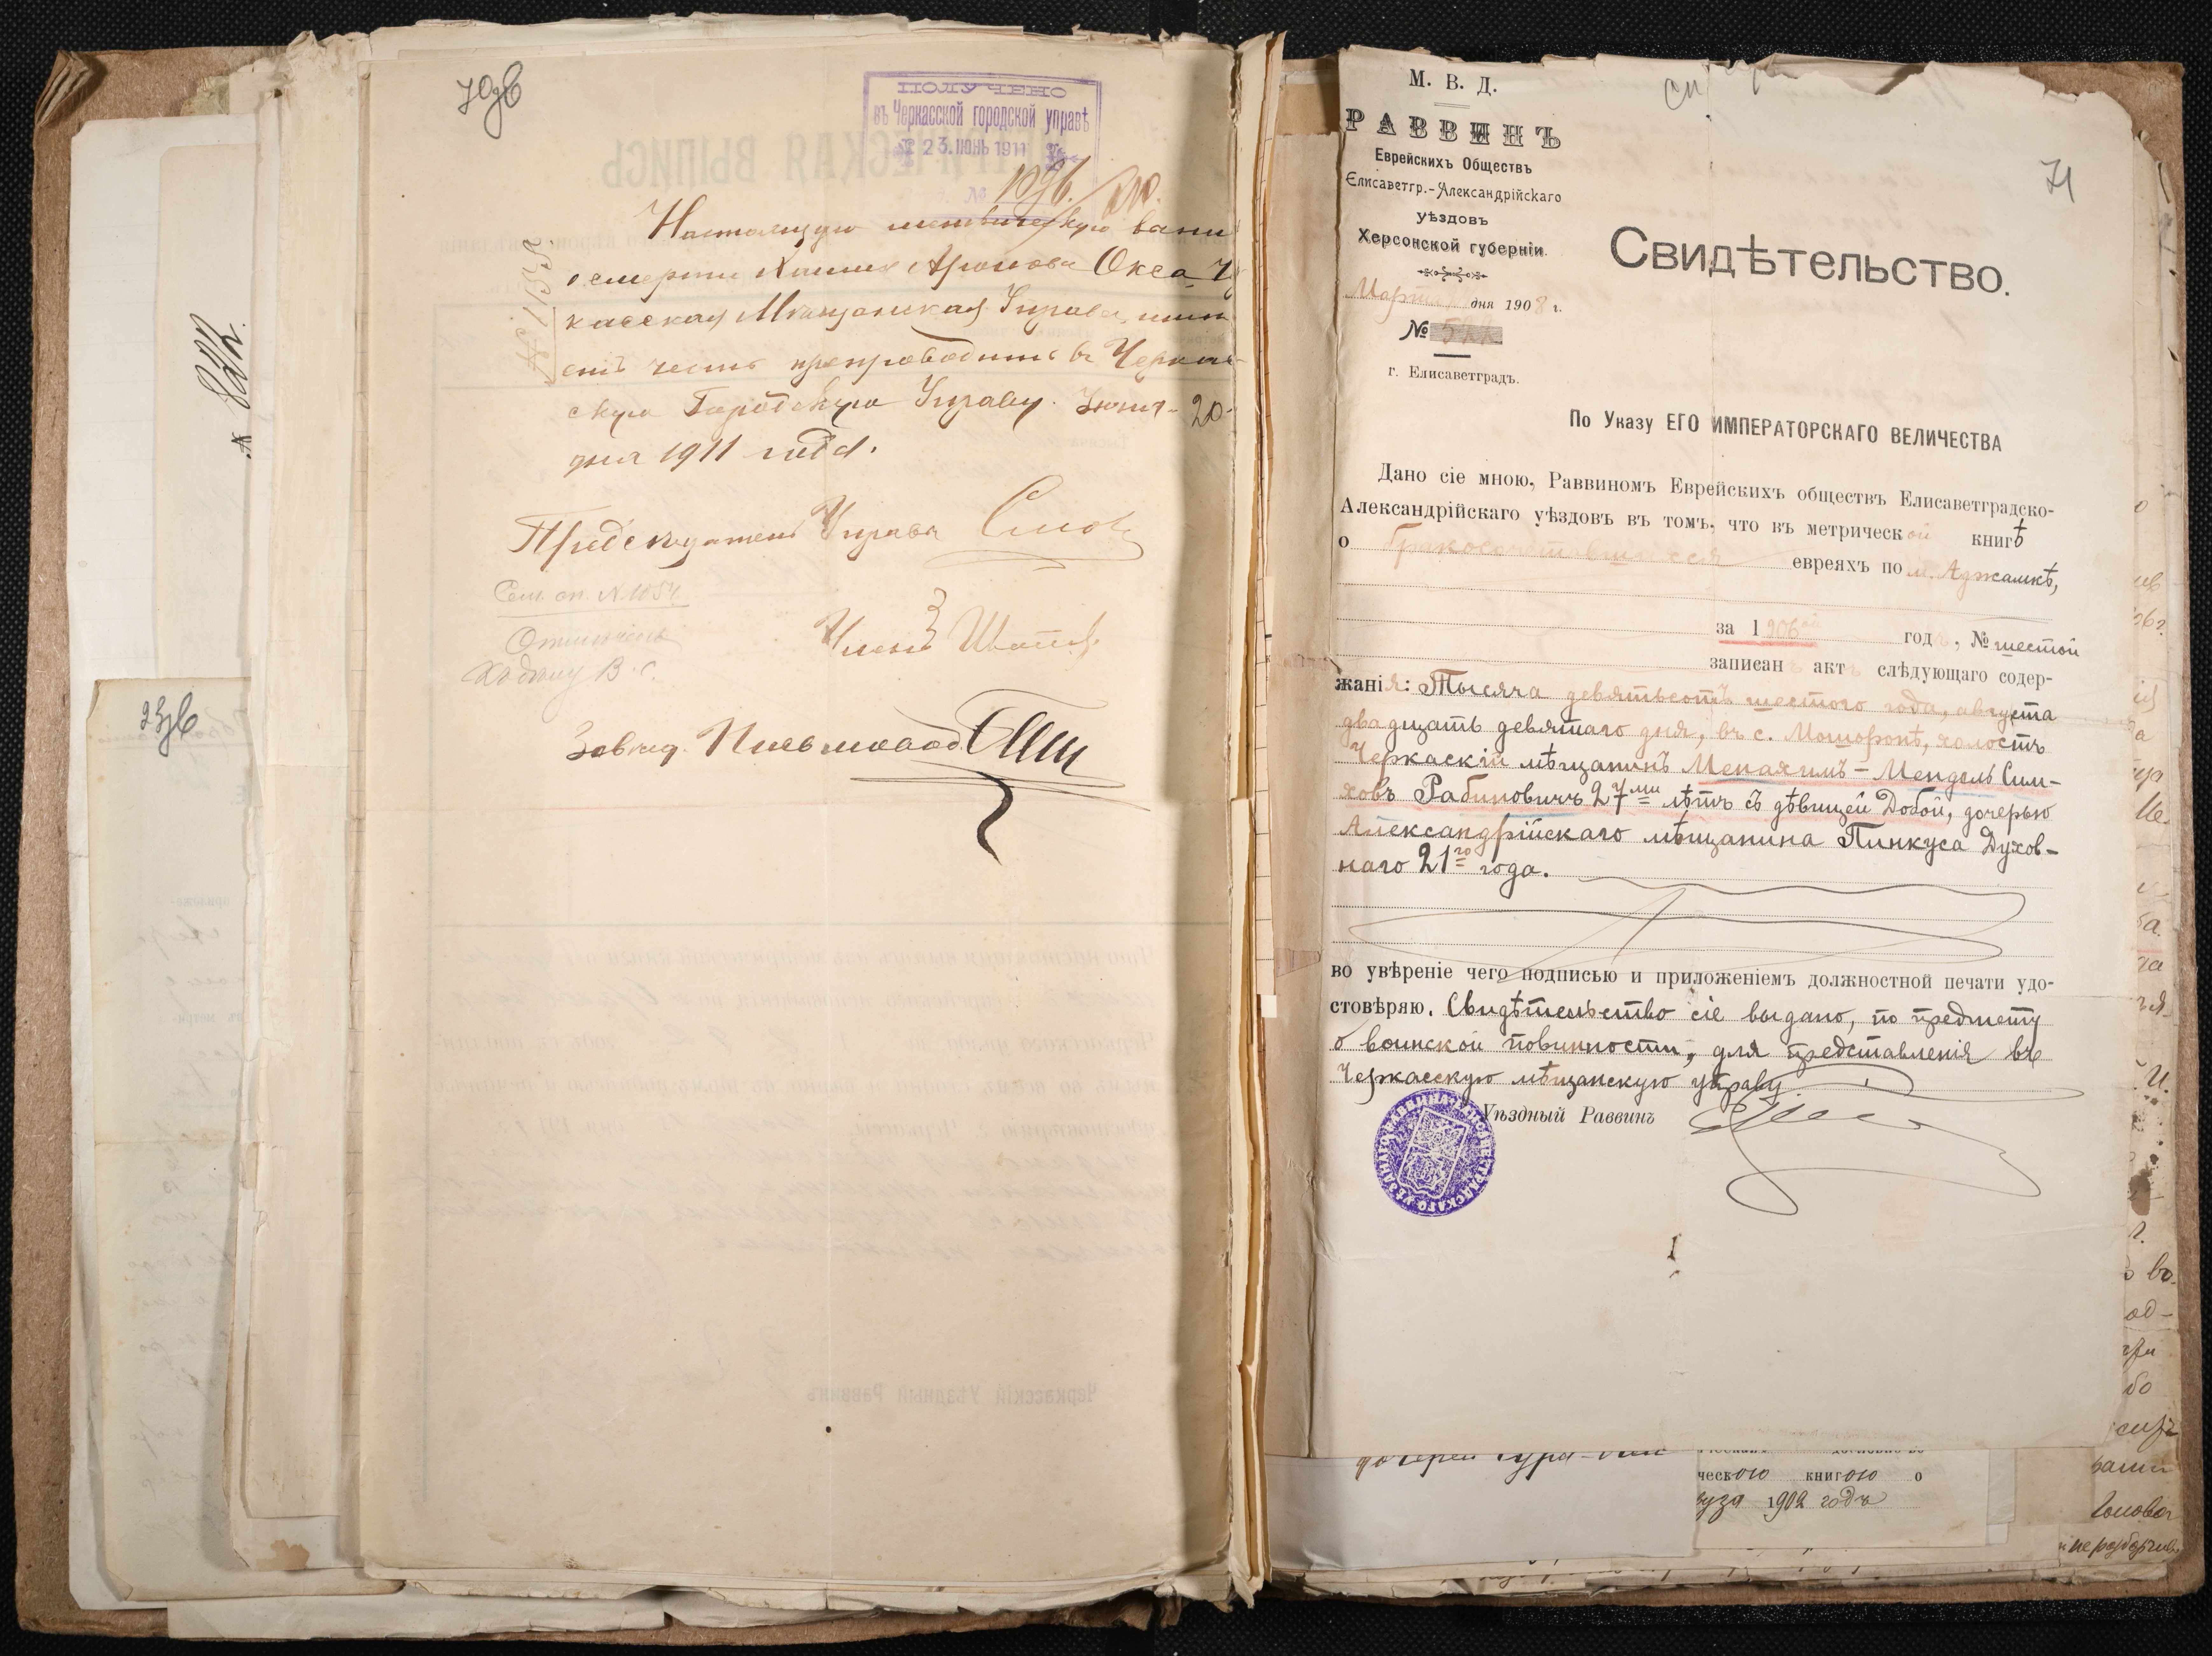 70об
ПОЛУЧЕНО
въ Черкасской городской управѣ
23. ІЮНЬ 1911
№ 1096.
Настоящую метрическую
о смерти Аронова Окса
касская Мѣщанская Управа
етъ честь препроводить въ Черкас-
скую Городскую Управу. Іюня 20
дня 1911 года.
Предсѣдатель Управы
Сем. сп. № 1054
Членъ
Завѣд. Письмовод
№ 822.
23об
М. В. Д.
РАВВИНЪ
Еврейскихъ Обществъ
Елисаветгр.-Александрійскаго
уѣздовъ
Херсонской губерніи.
Марта дня 1908 г.
№
г. Елисаветградъ.
71
Свидѣтельство.
По Указу ЕГО ИМПЕРАТОРСКАГО ВЕЛИЧЕСТВА
Дано сіе мною, Раввиномъ Еврейскихъ обществъ Елисаветградско-
Александрійскаго уѣздовъ въ томъ, что въ метрической книгѣ
о бракосочетавшихся евреяхъ по м. Аджамкѣ,
за 1906ой годъ, № шестой
записанъ актъ слѣдующаго содер-
жанія: Тысяча девятьсотъ шестого года, августа
двадцать девятаго дня, въ с. Мошоронѣ, холостъ
Черкаскій мѣщанинъ Менахимъ-Мендель Сим-
ховъ Рабиновичъ 27ми лѣтъ съ дѣвицей Добой, дочерью
Александрійскаго мѣщанина Пинкуса Духов-
наго 21го года.
во увѣреніе чего подписью и приложеніемъ должностной печати удо-
стовѣряю. Свидѣтельство сіе выдано, по предмету
о воинской повинности, для представленія въ
Черкасскую мѣщанскую управу.
Уѣздный Раввинъ
ческою книгою о
1902 годъ